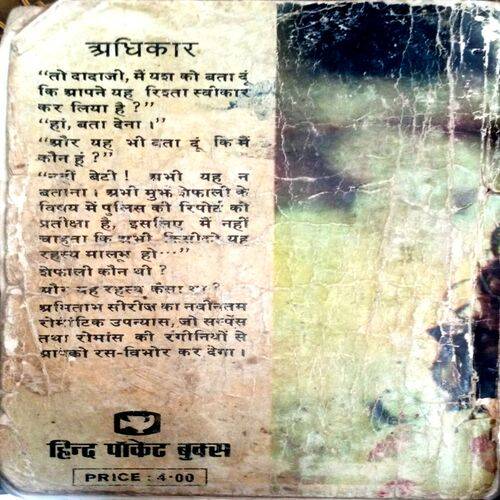 अधिकार
“तो दादाजी, मैं यश को बता दूं
कि आपने यह रिश्ता स्वीकार
कर लिया है ?”
“हां, बता देना ।”
“और यह भी बता दूं कि मैं
कौन हूं ?”
“नहीं बेटी ! अभी यह न
बताना । अभी मुझे शेफाली के
विषय में पुलिस की रिपोर्ट की
प्रतीक्षा है, इसलिए मैं नहीं
चाहता कि अभी किसीको यह
रहस्य मालूम हो···”
शेफाली कौन थी ?
और यह रहस्य कैसा था ?
अमिताभ सीरीज का नवीनतम
रोमांटिक उपन्यास, जो सस्पेंस
तथा रोमांस की रंगीनियों से
आपको रस-विभोर कर देगा ।
हिन्द पॉकेट बुक्स
PRICE : 4·00